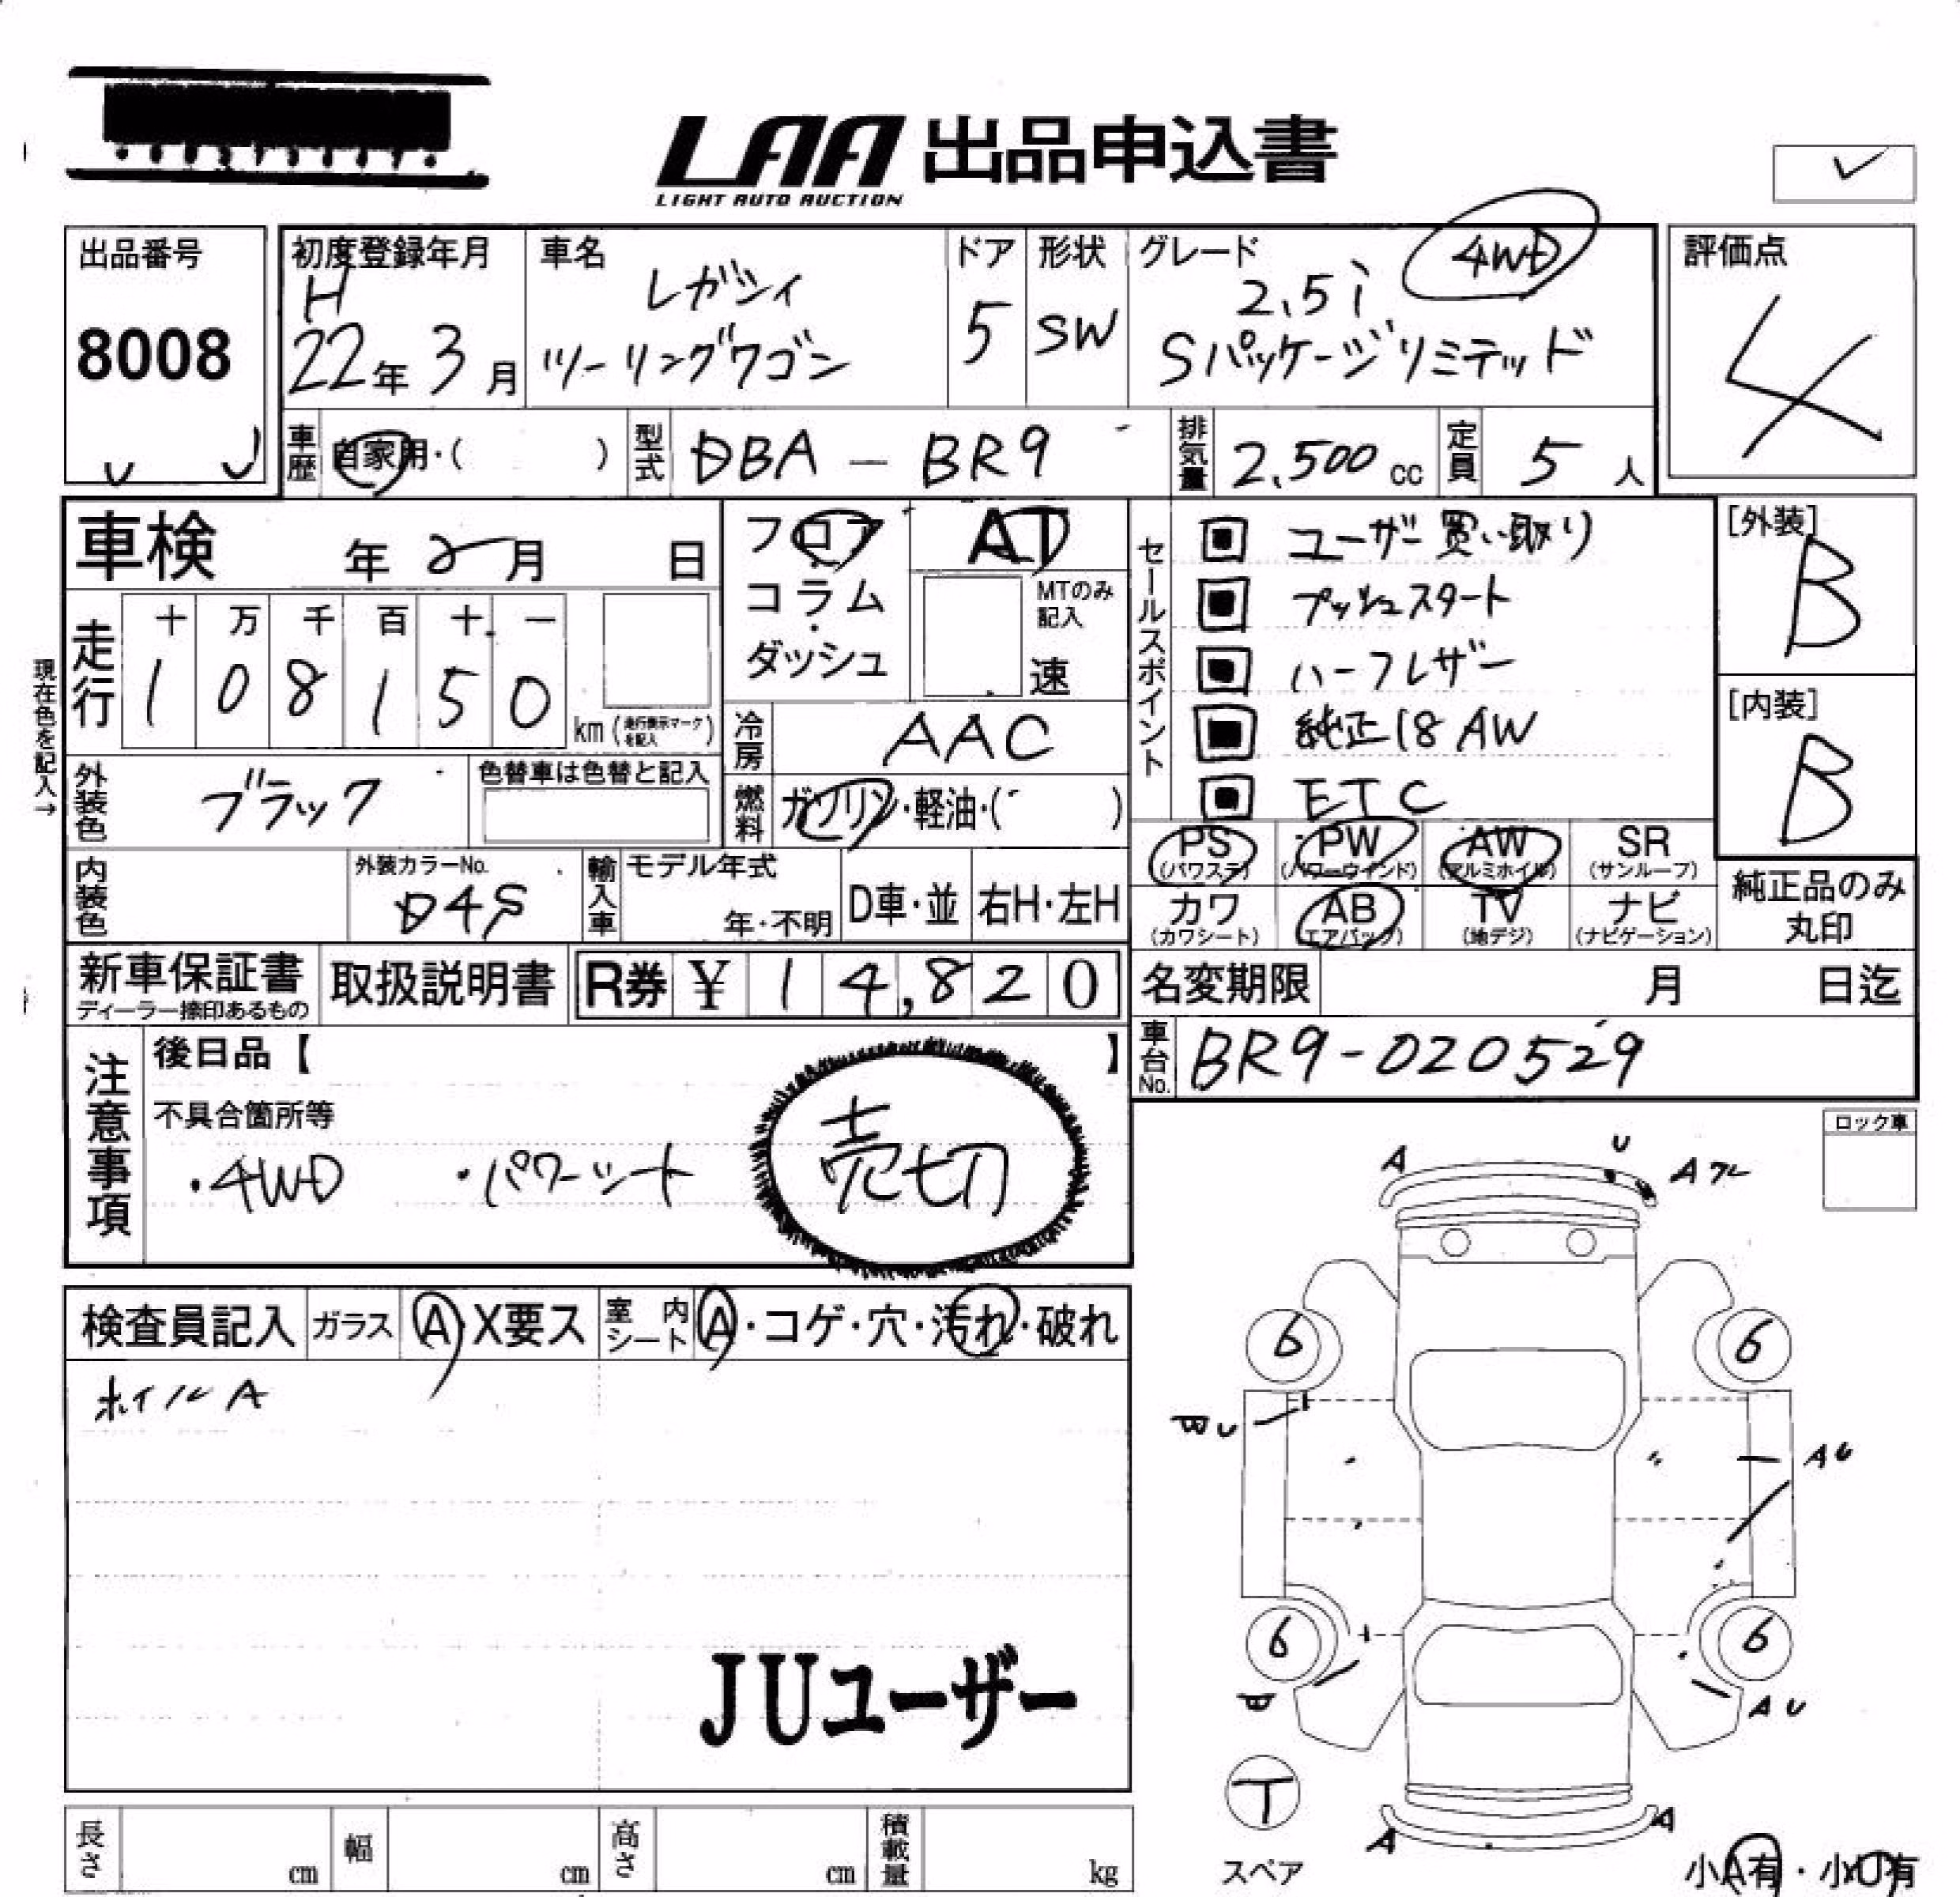 LAA 出品申込書
LIGHT AUTO AUCTION
出品番号
8008
初度登録年月
H
22年 3月
車名
レガシィ
ツーリングワゴン
ドア
5
形状
SW
グレード
4WD
2.5i
Sパッケージリミテッド
評価点
4
車歴
自家用・( )
型式
DBA - BR9
排気量
2,500 cc
定員
5 人
車検 年 2月 日
現在色を記入→
走行
十 万 千 百 十 一
1 0 8 1 5 0
km (走行表示マークを記入)
外装色
ブラック
色替車は色替と記入
内装色
外装カラーNo.
D4S
フロア
コラム
・
ダッシュ
AT
MTのみ
記入
速
冷房
AAC
燃料
ガソリン・軽油・( )
輸入車
モデル年式
年・不明
D車・並
右H・左H
セールスポイント
ユーザー買い取り
プッシュスタート
ハーフレザー
純正18AW
ETC
[外装]
B
[内装]
B
PS
(パワステ)
PW
(パワーウインド)
AW
(アルミホイル)
SR
(サンルーフ)
カワ
(カワシート)
AB
(エアバック)
TV
(地デジ)
ナビ
(ナビゲーション)
純正品のみ
丸印
新車保証書
ディーラー捺印あるもの
取扱説明書
R券 ¥ 14,820
名変期限 月 日迄
車台No.
BR9-020529
注意事項
後日品【 】
不具合箇所等
・4WD ・パワーシート
売切
ロック車
検査員記入
ガラス
A X要ス
室内シート
A・コゲ・穴・汚れ・破れ
ホイルA
JUユーザー
A
U
Aフレ
6
6
BU
AU
6
6
B
AU
T
スペア
A
A
小A有・小U有
長さ
cm
幅
cm
高さ
cm
積載量
kg